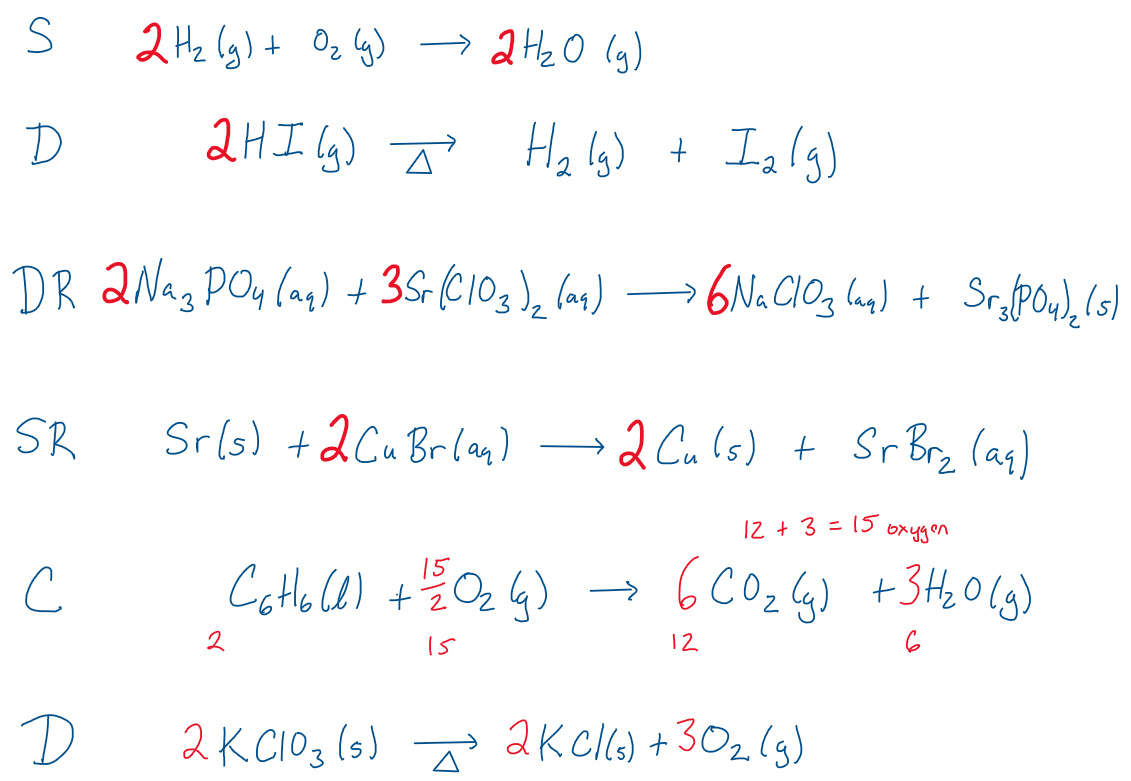 S 2H₂(g) + O₂(g) → 2H₂O (g)
D 2HI(g) →Δ H₂(g) + I₂(g)
DR 2Na₃PO₄(aq) + 3Sr(ClO₃)₂(aq) → 6NaClO₃(aq) + Sr₃(PO₄)₂(s)
SR Sr(s) + 2CuBr(aq) → 2Cu(s) + SrBr₂(aq)
12 + 3 = 15 oxygen
C C₆H₆(l) + 15/2 O₂(g) → 6CO₂(g) + 3H₂O(g)
2 15 12 6
D 2KClO₃(s) →Δ 2KCl(s) + 3O₂(g)